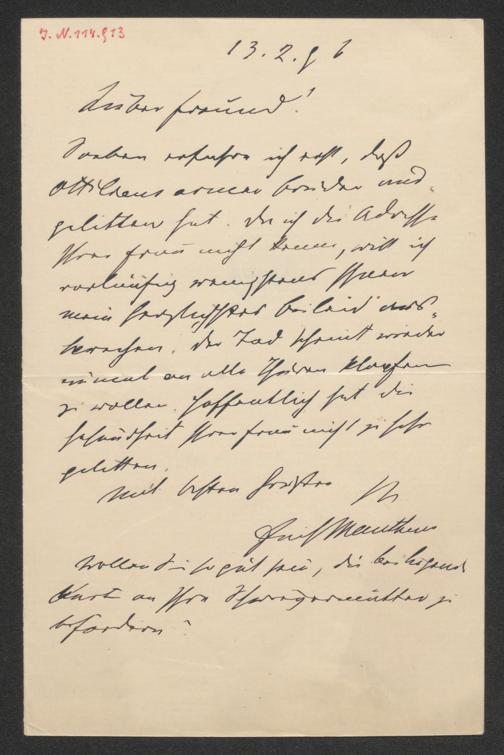 J. N. 114.913
13. 2. 96
Lieber Freund!
Soeben erfahre ich erst, daß
Ottiliens armer Bruder aus-
gelitten hat. Da ich die Adresse
Ihrer Frau nicht kenne, will ich
vorläufig wenigstens Ihnen
mein herzlichstes Beileid aus-
sprechen. Der Tod scheint wieder
einmal an alle Thüren klopfen
zu wollen. Hoffentlich hat die
Gesundheit Ihrer Frau nicht zu sehr
gelitten.
Mit besten Grüßen
Ihr
Mauthner
Wollen Sie so gut sein, die beiliegende
Karte an Ihre Schwiegermutter zu
befördern